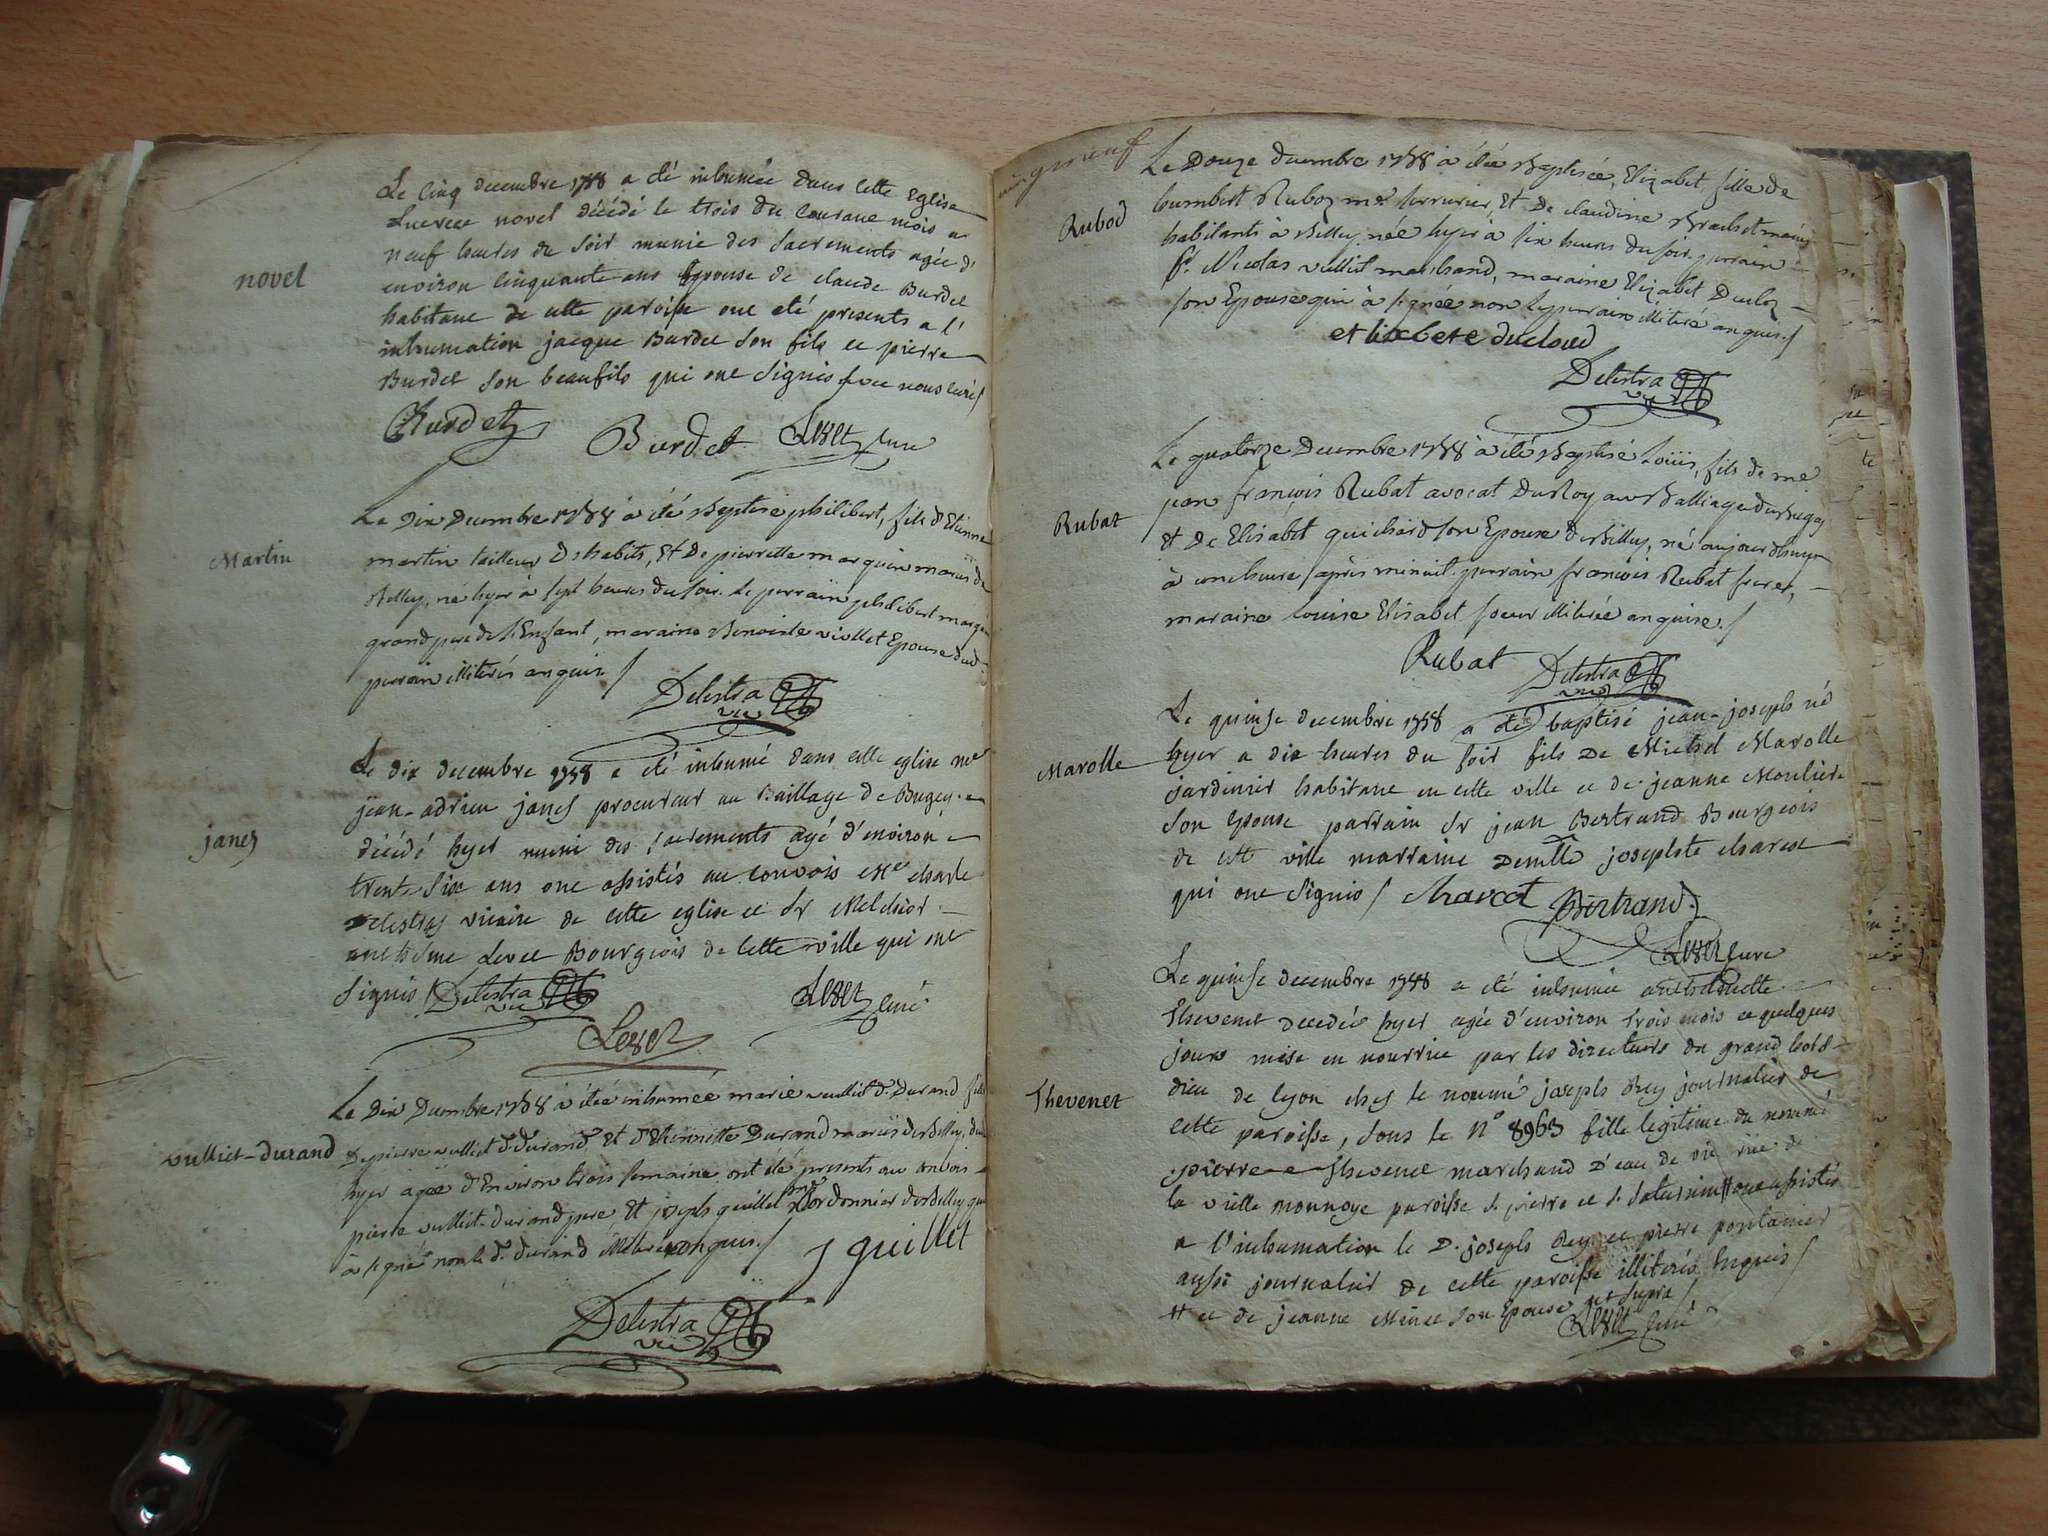 novel
Le cinq decembre 1758 a eté inhumée dans cette Eglise
Lucrece novel décédé le trois du courant mois a
neuf heures de soir munie des sacrements agée d'
environ cinquante ans Epouse de claude Burdet
habitant de cette paroisse ont eté presents a l'
inhumation jacque Burdet son fils et pierre
Burdet son beaufils qui ont signés avec nous curé /
Burdet Burdet Curé
Martin
Le Dix Decembre 1758 à été Baptisé philibert, fils d'Etienne
martin tailleur D'habits, Et De pierrette marquin mariés de
Belley, né hyer à sept heures du soir. Le parrain philibert
grand pere de l'Enfant, maraine Benoiste viollet Epouse dud.
parain illiterés enquis /
Delestra vic
janes
Le dix decembre 1758 a eté inhumé dans cette eglise me
jean-adrien janes procureur au Baillage de Bugey
décédé hyer muni des sacrements agé d'environ
trente six ans ont assistés au convois me charle
Delestras vicaire de cette eglise et Sr Melchior
anthelme Bourgeois de cette ville qui ont
signés / Delestra vic curé
vulliet-durand
Le Dix Decembre 1758 à étée inhumée marie vulliet d. Durand fille
De pierre vulliet d. durand, Et d'Etiennette Durand mariés de Belley,
hyer agée d'Environ trois semaine, ont été presents au convois
pierre vulliet-durand pere, Et joseph guillet me Cordonnier de Belley qui
à signé non le d. durand illiteré enquis. / J guillet
Delestra vic
Rubod
Le Douze decembre 1758 à étée Baptisée, Elizabet, fille de
humbert Ruboz me serrurier, Et De claudine Brachet mariés
habitants à Belley, née hyer à six heures du soir. parrain
sr. Nicolas vulliet marchand, maraine Elizabet Ducloz
son Epouse qui à signée non le parrain illiteré enquis. /
Delestra vic
Rubat
Le quatorze Decembre 1758 à été Baptisé Louis, fils de me
jean françois Rubat avocat Du Roy au Balliage du Bugey
Et De Elisabet guichard son Epouse de Belley, né aujourdhuy
à une heure après minuit. parrain françois Rubat frere,
maraine Louise Elisabet soeur illiterée enquise. /
Rubat Delestra vic
Marolle
Le quinse decembre 1758 a eté baptisé jean-joseph né
hyer a dix heures du soir fils De Michel Marolle
jardinier habitant en cette ville et de jeanne Mouliere
son Epouse parrain Sr jean Bertrand Bourgeois
de cette ville marraine Demlle josephte
qui ont signés / Bertrand
curé
Thevenet
Le quinse decembre 1758 a eté inhumée
Thevenet decedée hyer agée d'environ trois mois et quelques
jours mise en nourrice par les directeurs du grand hotel
dieu de lyon ches le nommé joseph Rey journalier de
cette paroisse, sous le N° 8963 fille legitime du nommé
pierre Thevenet marchand D'eau de vie rüe de
la vielle monnoye paroisse St. pierre et St. Saturnin # ont assistés
a l'inhumation le D. joseph Rey et pierre pontanier
aussi journalier de cette paroisse illiterés Enquis /
# et de jeanne Minet son Epouse ut supra
curé